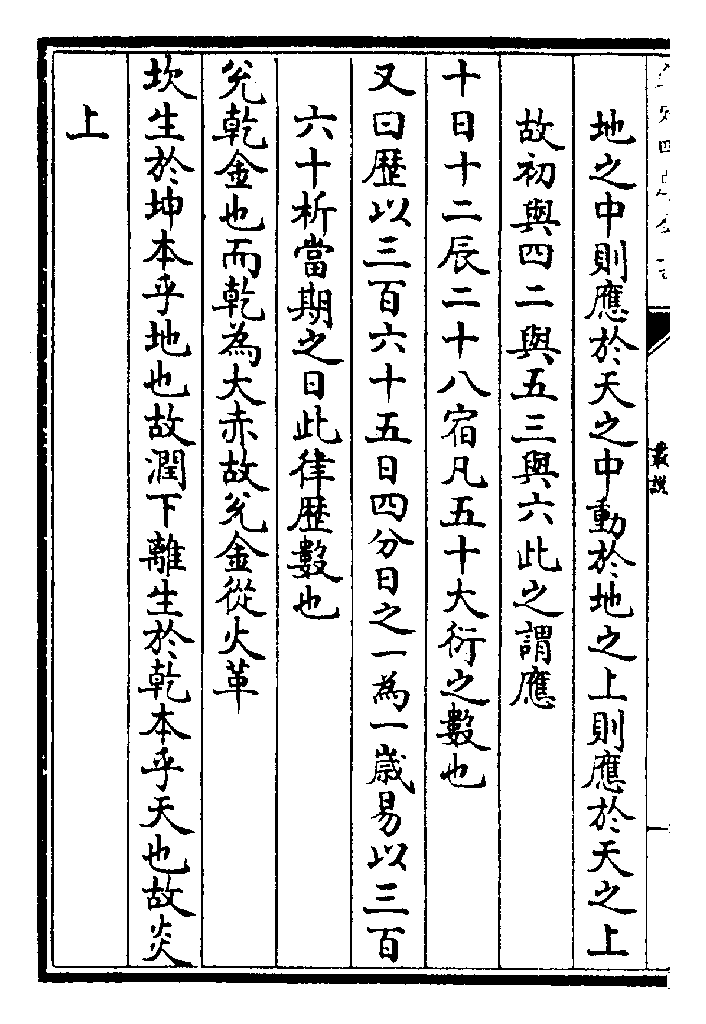 地之中則應於天之中動於地之上則應於天之上
故初與四二與五三與六此之謂應
十日十二辰二十八宿凡五十大衍之數也
又曰歴以三百六十五日四分日之一為一歲易以三百
六十析當期之日此律歴數也
兊乾金也而乾為大赤故兊金從火革
坎生於坤本乎地也故潤下離生於乾本乎天也故炎
上
叢說